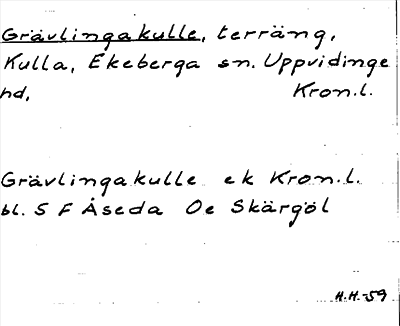 Grävlingakulle, terräng,
Kulla, Ekeberga sn. Uppvidinge
hd, Kron.l.
Grävlingakulle ek Kron.l.
bl. 5 F Åseda Oe Skärgöl
H.H.-59